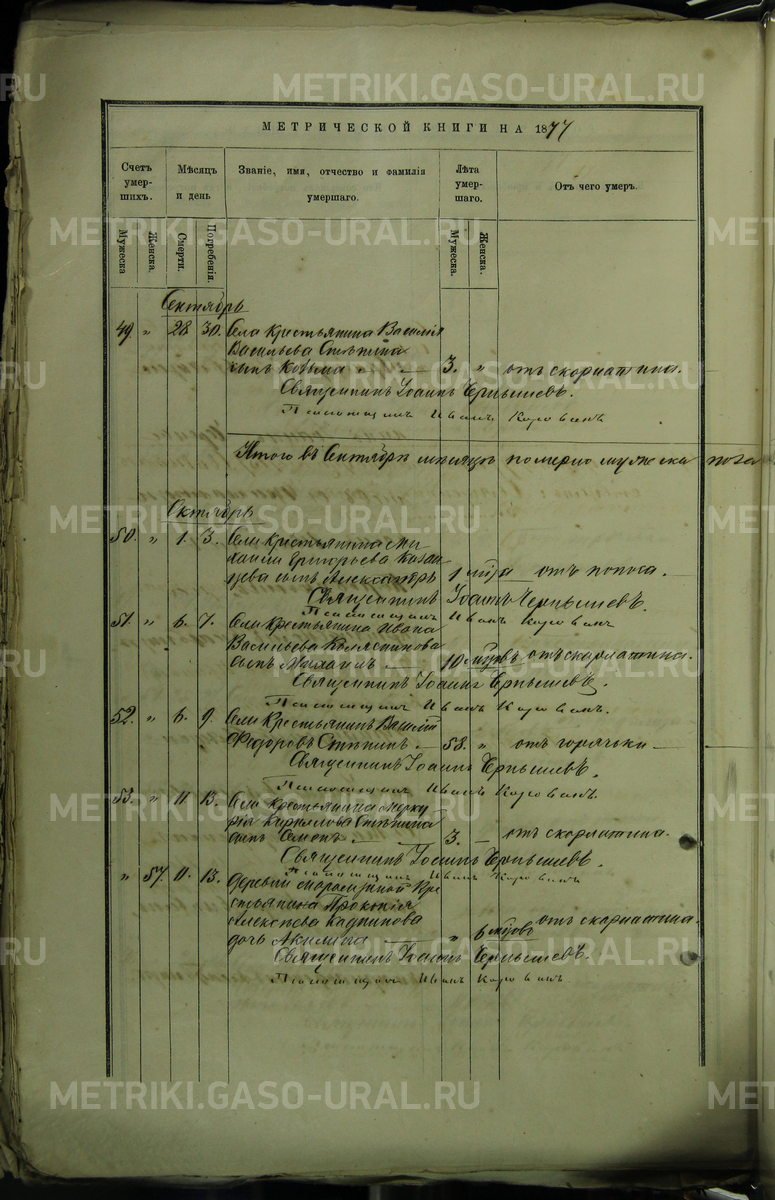 METRIKI.GASO-URAL.RU
МЕТРИЧЕСКОЙ КНИГИ НА 1877
Счетъ умер-шихъ.
Мѣсяцъ и день
Званіе, имя, отчество и фамилія умершаго.
Лѣта умер-шаго.
Отъ чего умеръ.
Мужеска
Женска.
Смерти.
Погребенія.
Мужеска.
Женска.
Сентябрь
49 „ 28 30. Села Крестьянина Василія
Васильева Степина
сынъ Козьма — 3. „ отъ скорлатина.
Священникъ Іоаннъ Чернышевъ.
Псаломщикъ Иванъ Коровинъ
Итого въ Сентябрѣ мѣсяцѣ померло мужеска пола
Октябрь
50. „ 1. 3. Села Крестьянина Ми
хаила Григорьева Казан
цева сынъ Александръ 1 мѣ̃ца отъ поноса.
Священникъ Іоаннъ Чернышевъ.
Псаломщикъ Иванъ Коровинъ
51. „ 6. 7. Села Крестьянина Ивана
Васильева
сынъ Михаилъ — 10 мѣ̃цовъ отъ скорлатина.
Священникъ Іоаннъ Чернышевъ.
Псаломщикъ Иванъ Коровинъ.
52. „ 6. 9. Села Крестьянинъ Василій
Федоровъ Степинъ — 58. „ отъ горячьки —
Священникъ Іоаннъ Чернышевъ.
Псаломщикъ Иванъ Коровинъ.
53. „ 11 13. Села Крестьянина Мерку
рія Кирилова Степина
сынъ Семенъ — 3. — отъ скорлатина.
Священникъ Іоаннъ Чернышевъ.
Псаломщикъ Иванъ Коровинъ
„ 57. 11. 13. Деревни Кре
стьянина Прокопія
Алексѣева
дочь Акилина — „ 6 мѣ̃цовъ отъ скорлатина.
Священникъ Іоаннъ Чернышевъ.
Псаломщикъ Иванъ Коровинъ